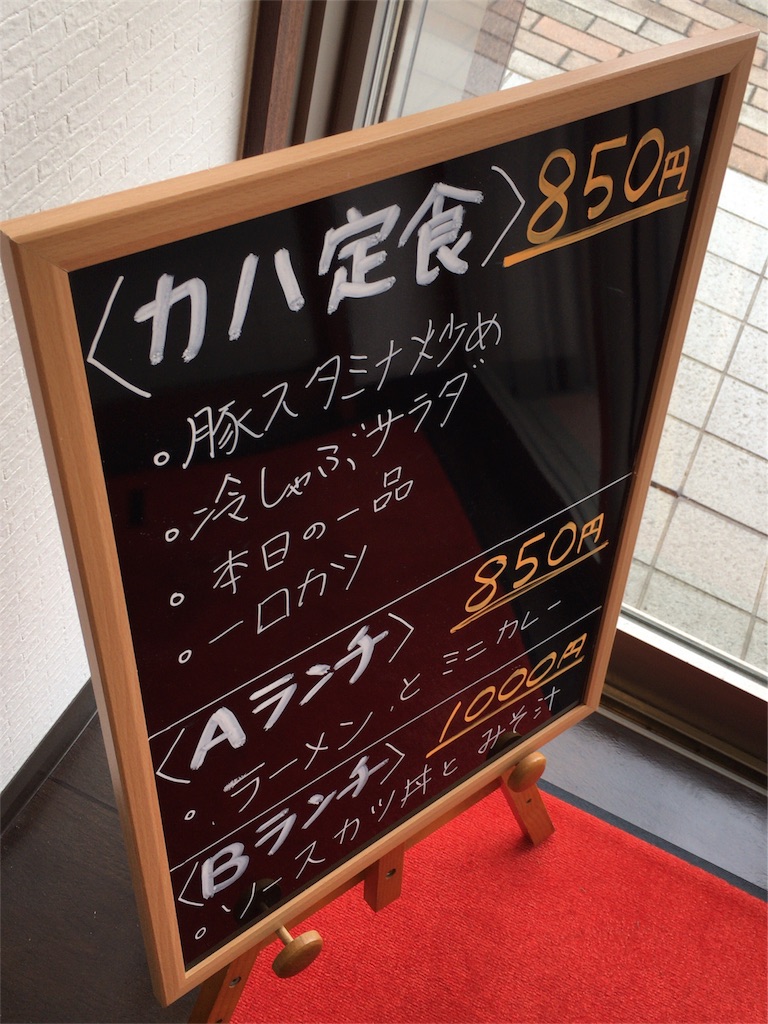 〈カハ定食〉850円
○豚スタミナ炒め
○冷しゃぶサラダ
○本日の一品
○一口カツ
〈Aランチ〉850円
○ラーメンとミニカレー
〈Bランチ〉1000円
○ソースカツ丼とみそ汁